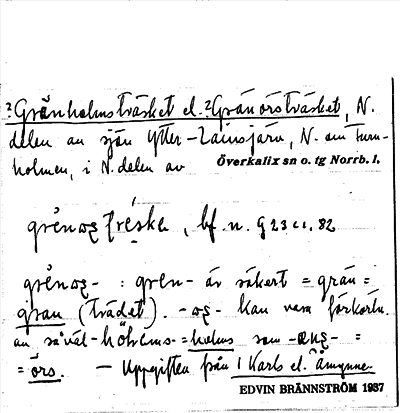 ?Gränholmsträsket el. ?Gränörsträsket, N.
delen av sjön Ytter-Lainsjärv, N. om Furu-
holmen, i N. delen av Överkalix sn o. tg Norrb. l.
bf. n. G 23 c1. 82
: gren- är säkert = grän =
gran (trädet). -og- kan vara förkortn.
av såväl - = holms som =
= örs. — Uppgiften från 1 Karls el. Åmynne.
EDVIN BRÄNNSTRÖM 1937